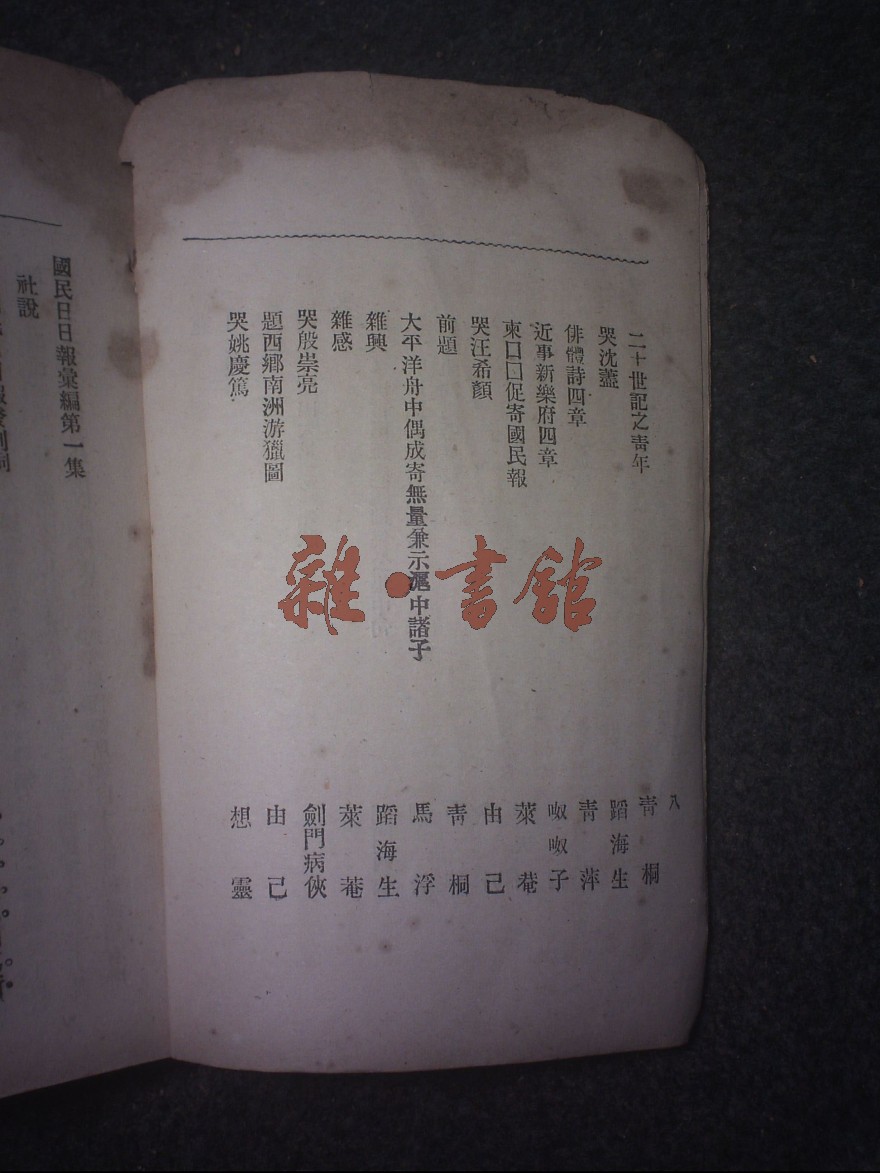 八
二十世記之青年 青桐
哭沈藎 蹈海生
俳體詩四章 青萍
近事新樂府四章 呶呶子
柬口口促寄國民報 萊菴
哭汪希顏 由己
前題 青桐
大平洋舟中偶成寄無量兼示滬中諸子 馬浮
雜興 蹈海生
雜感 萊菴
哭殷崇亮 劍門病俠
題西鄉南洲游獵圖 由己
哭姚慶篤 想靈
國民日日報彙編第一集
社說
雜·書館